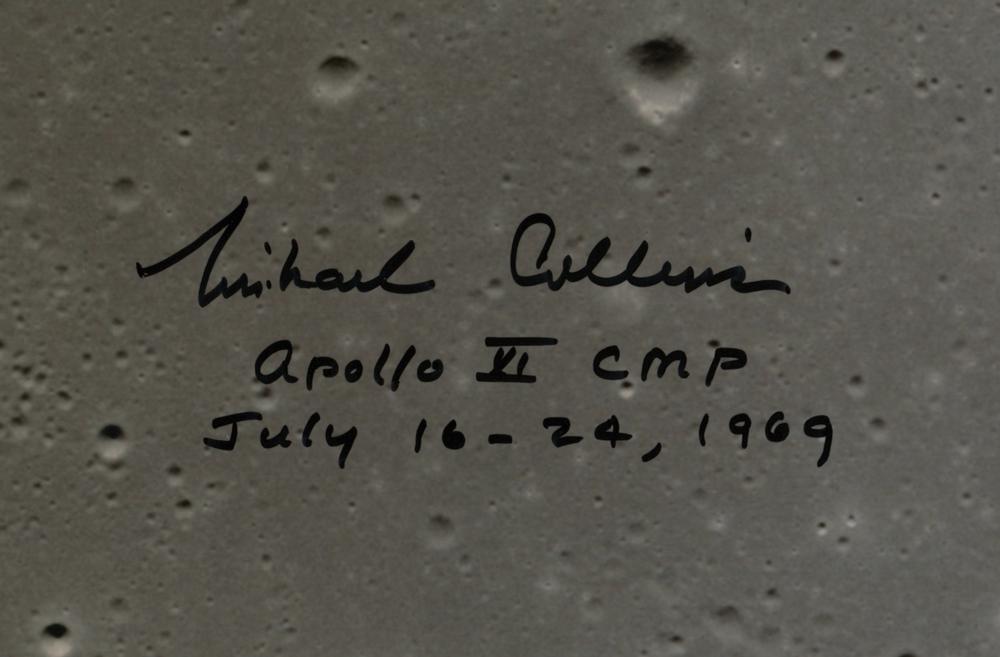 Michael Collins
Apollo XI CMP
July 16-24, 1969